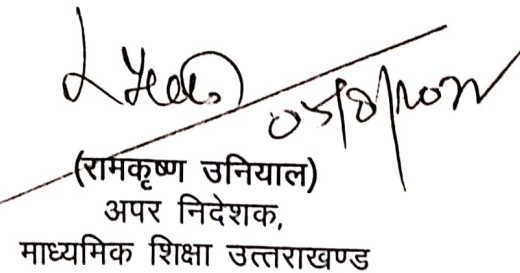 05/8/2022
(रामकृष्ण उनियाल)
अपर निदेशक,
माध्यमिक शिक्षा उत्तराखण्ड